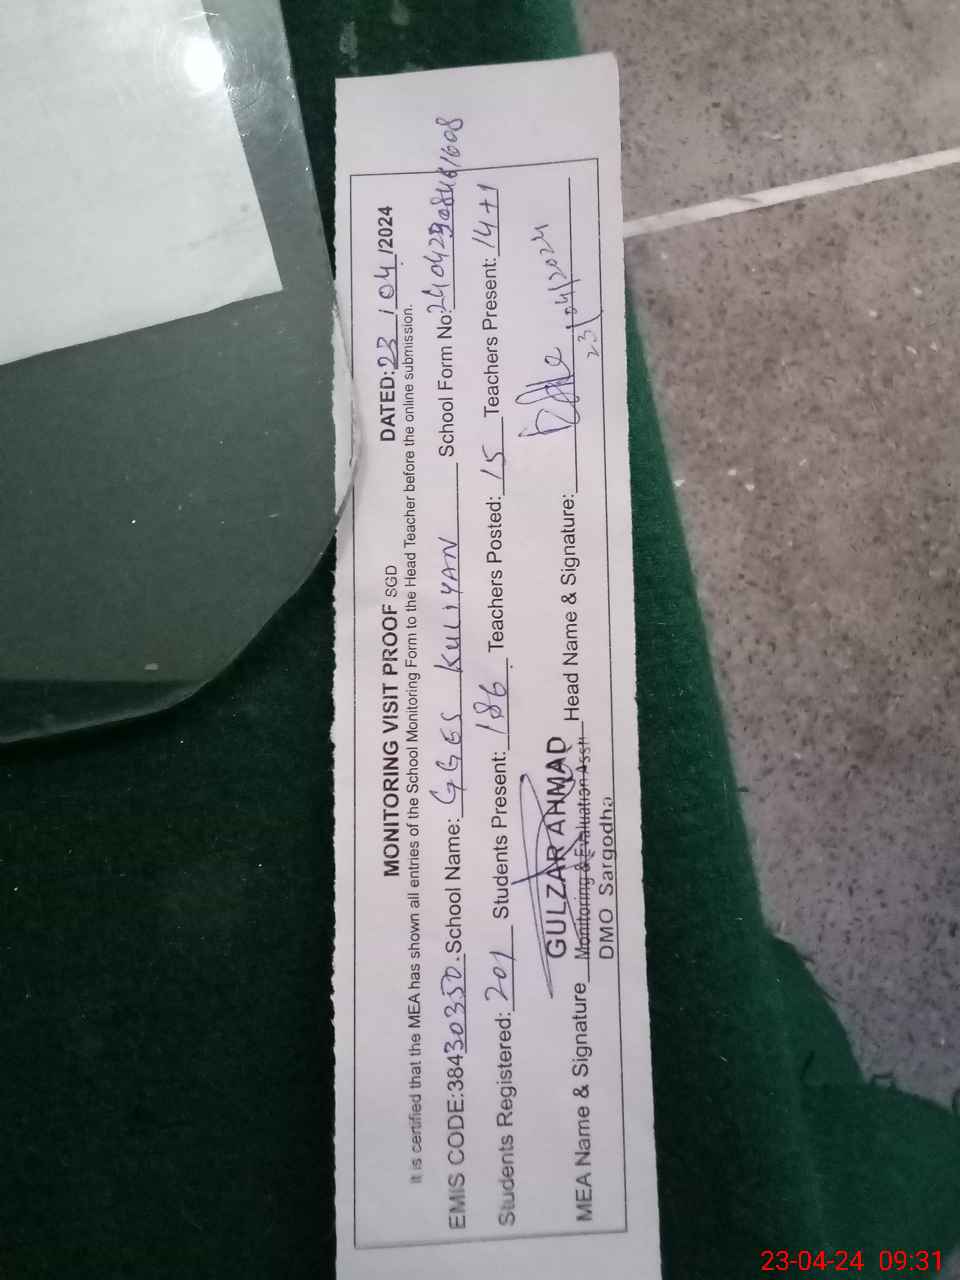 MONITORING VISIT PROOF SGD DATED: 23/04/2024
It is certified that the MEA has shown all entries of the School Monitoring Form to the Head Teacher before the online submission.
EMIS CODE:38430350. School Name: GGES KULIYAN School Form No:
Students Registered: 201 Students Present: 186 Teachers Posted: 15 Teachers Present: 14+1
GULZAR AHMAD
MEA Name & Signature Monitoring & Evaluation Asstt Head Name & Signature:
23/04/2024
DMO Sargodha
23-04-24 09:31